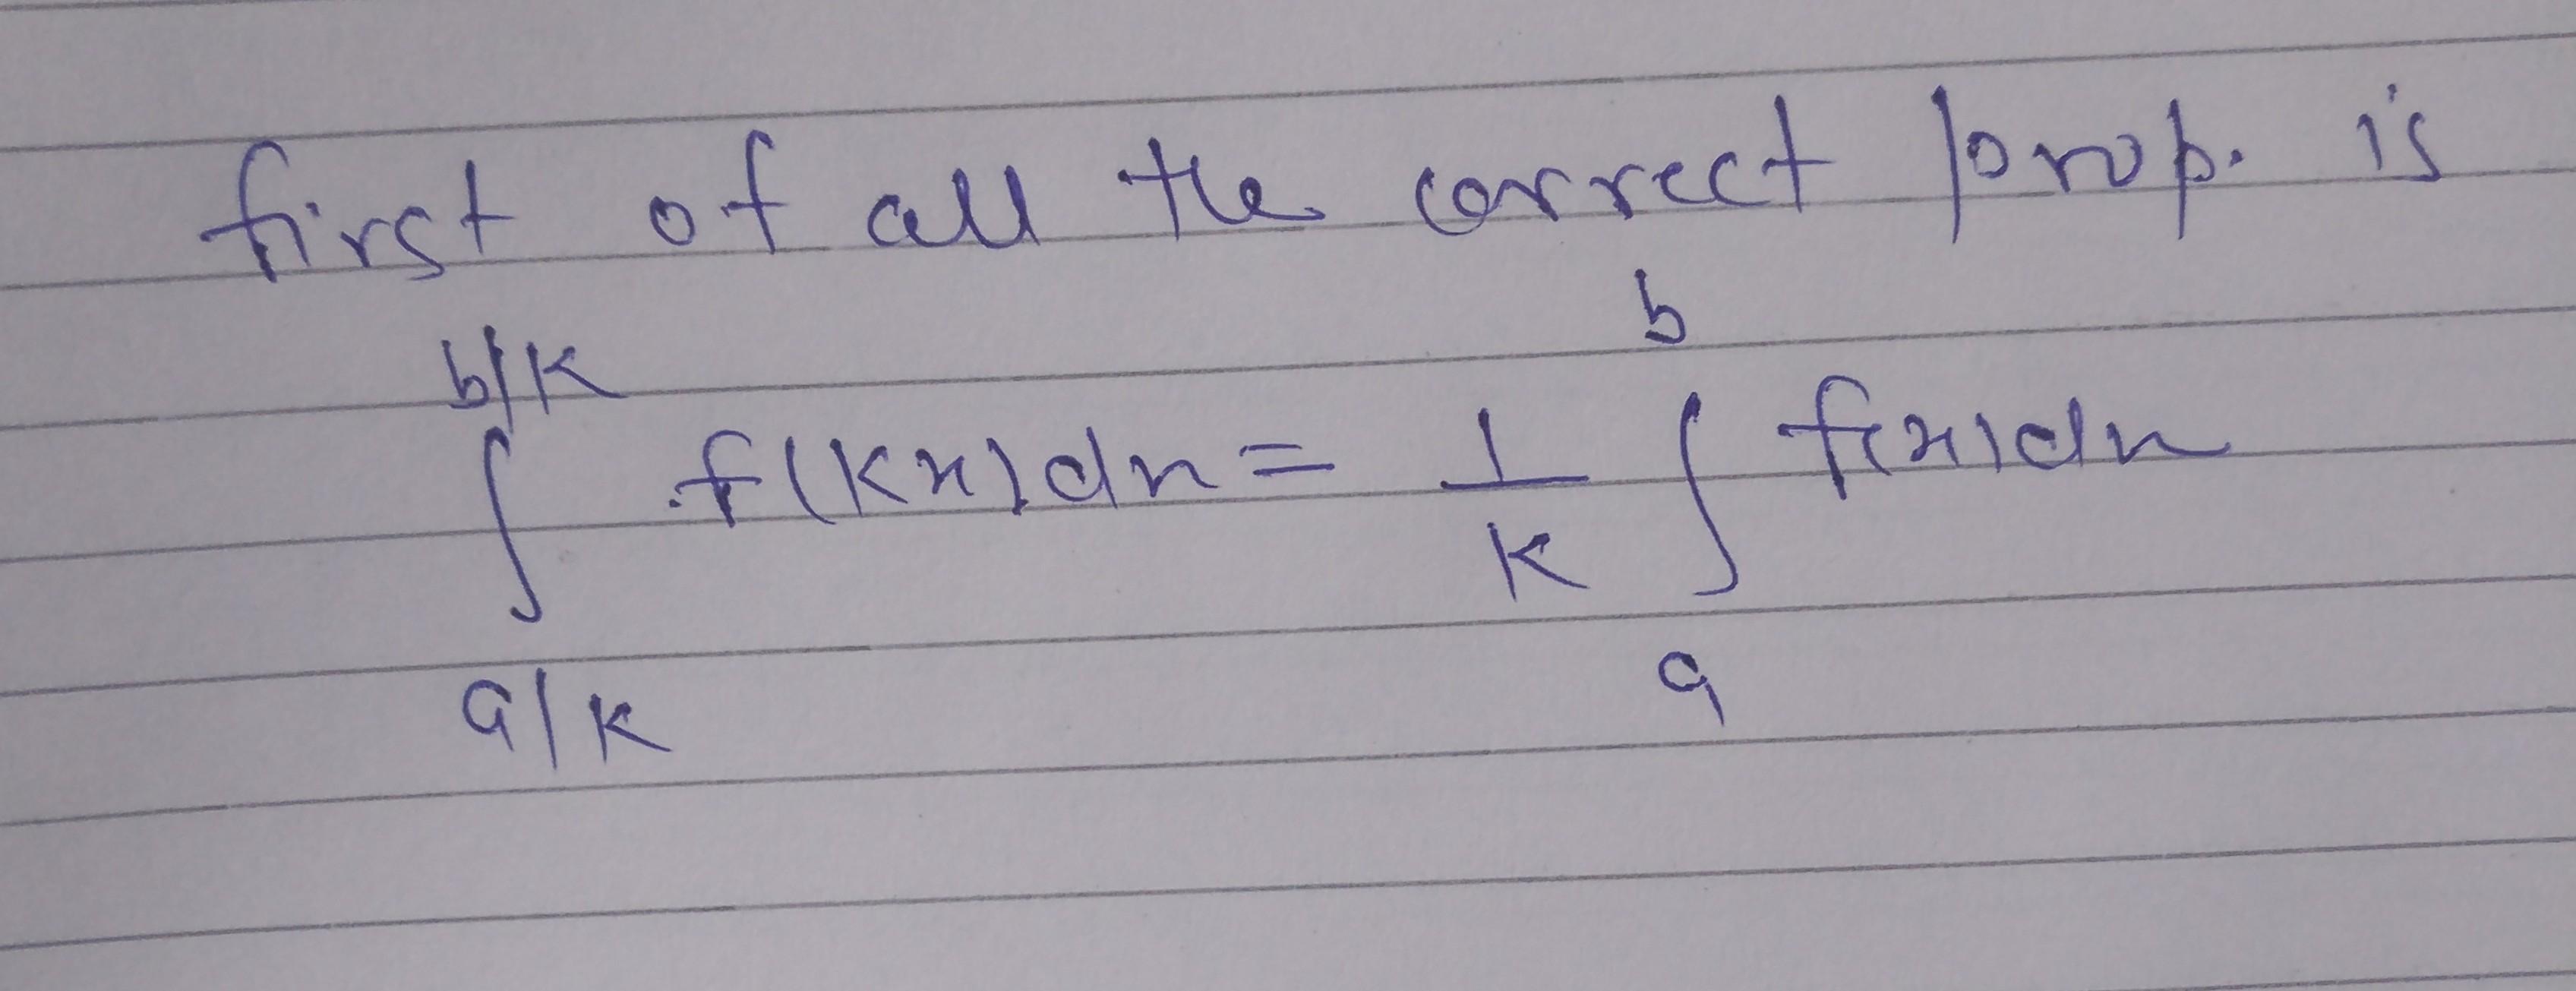 first of all the correct prop. is
b/K b
∫ f(Kx)dx = 1/K ∫ f(x)dx
a/K a